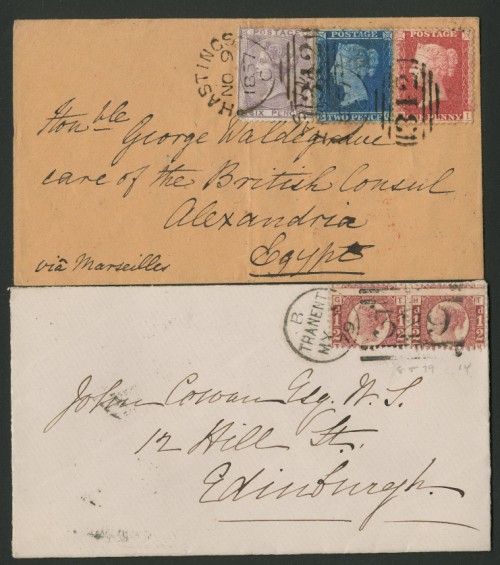 HASTINGS
NO 9
1857
POSTAGE
SIX PENCE
POSTAGE
TWO PENCE
POSTAGE
PENNY
312
Hon.ble
George Waldegrave
care of the British Consul
Alexandria
Egypt
via Marseilles
B
TRANENT
MY
½
½
John Cowan Esq. W.S.
12 Hill St.
Edinburgh.